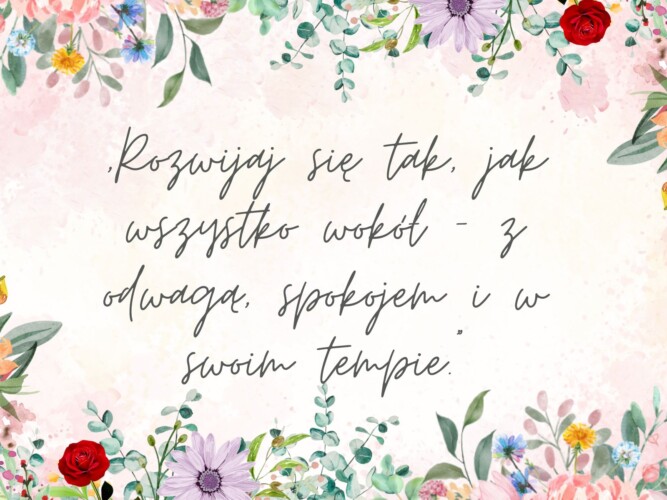 ‚Rozwijaj się tak, jak
wszystko wokół - z
odwagą, spokojem i w
swoim tempie.”